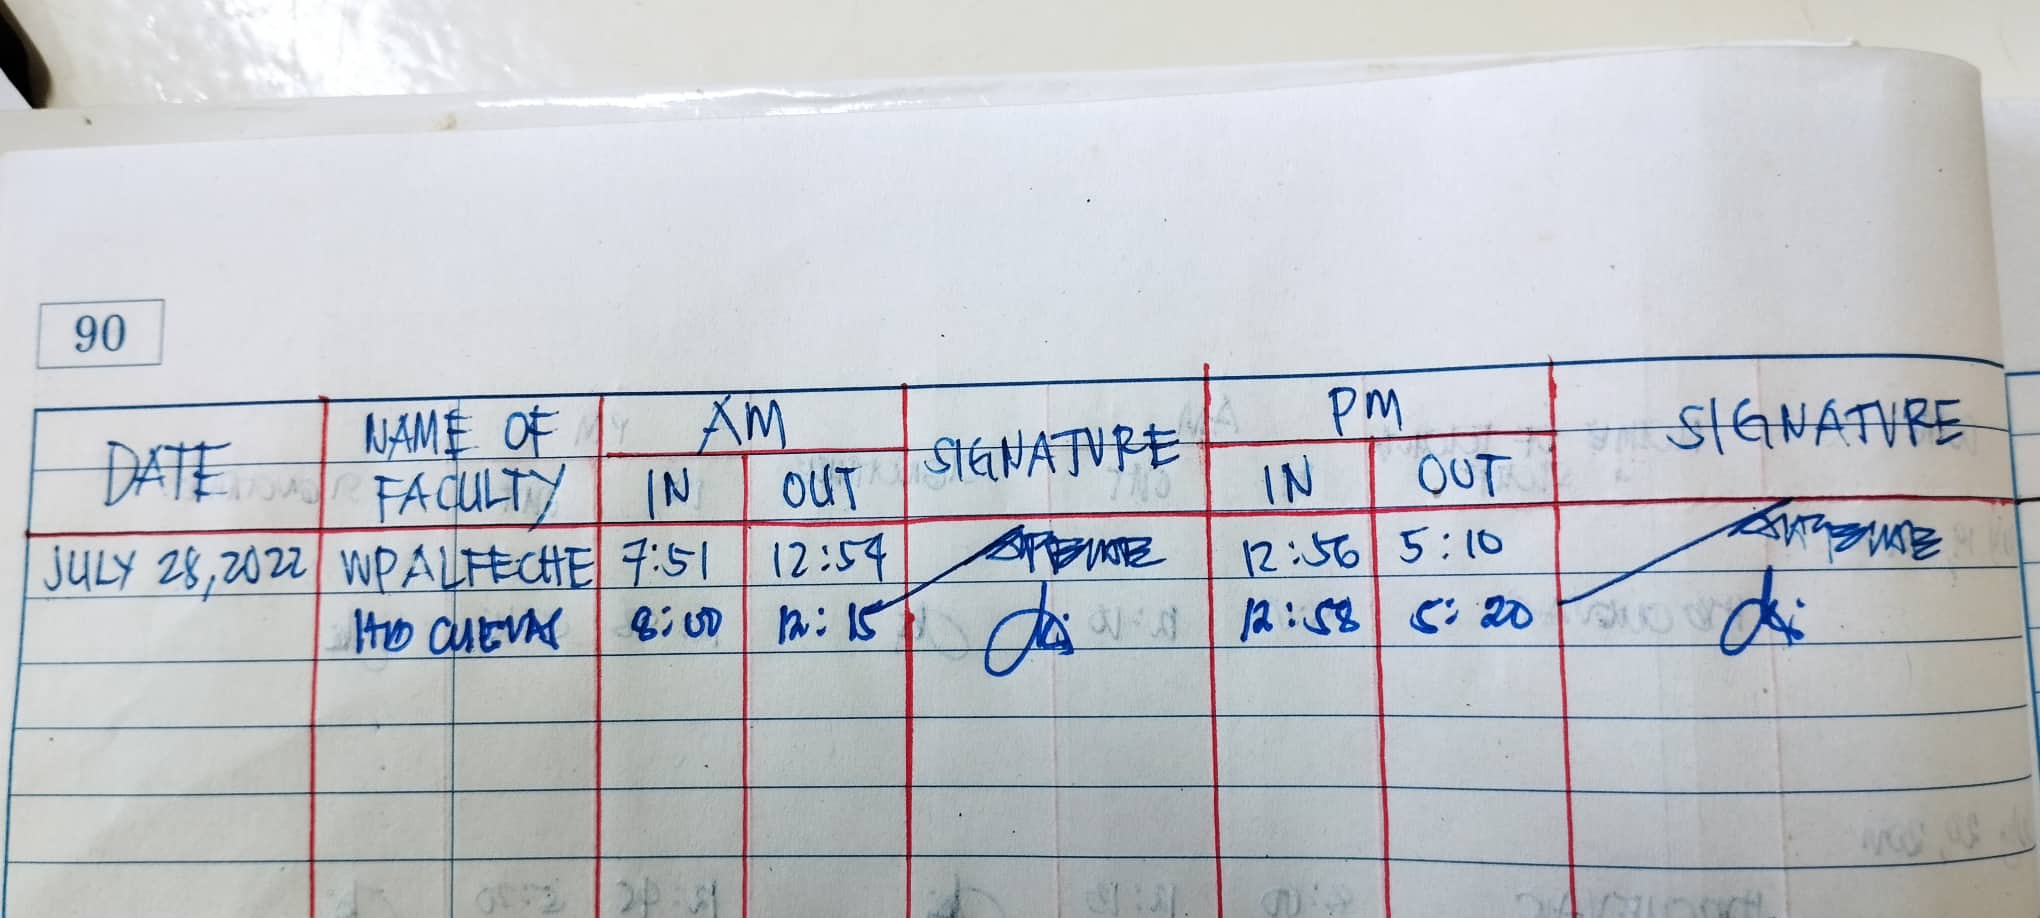 90
DATE NAME OF FACULTY AM IN OUT SIGNATURE PM IN OUT SIGNATURE
JULY 28, 2022 WPALFECHE 7:51 12:54 12:56 5:10
HD CUEVAS 8:00 12:15 12:58 5:20